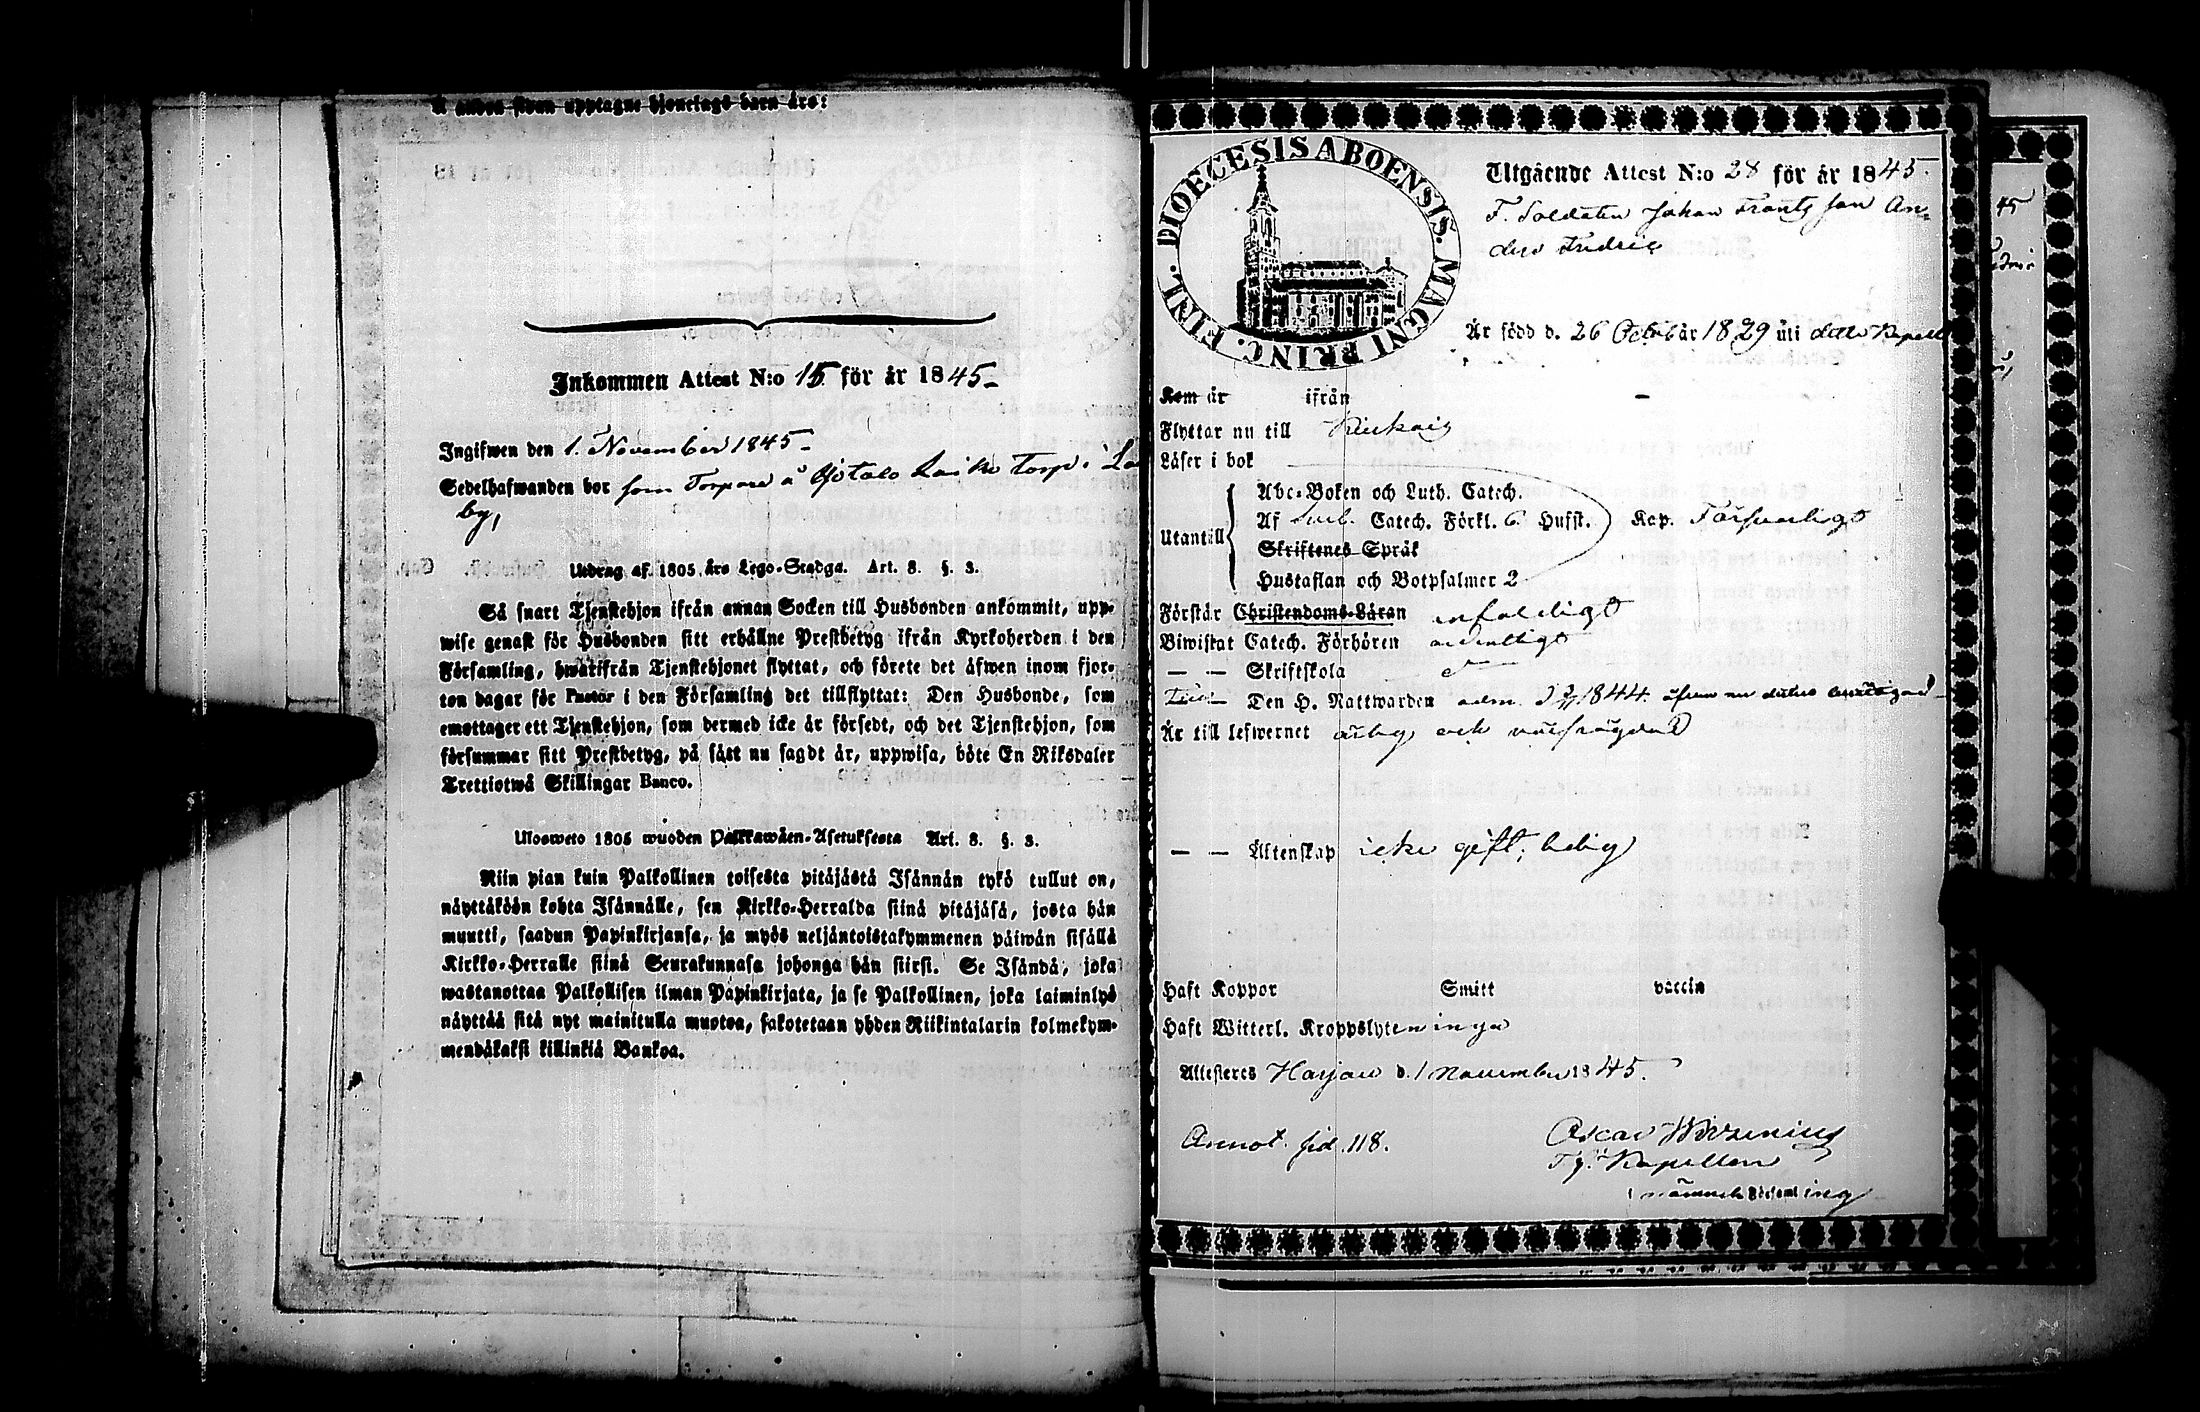 Å andra sidan upptagne hjonelags barn äro:
Inkommen Attest N:o 15 för år 1845
Ingifwen den 1. November 1845
Sedelhafwanden bor som Torpare å
by,
Utdrag af 1805 års Lego-Stadga. Art. 8. §. 3.
Så snart Tjenstehjon ifrån annan Socken till Husbonden ankommit, upp-
wise genast för Husbonden sitt erhållne Prestbetyg ifrån Kyrkoherden i den
Församling, hwarifrån Tjenstehjonet flyttat, och förete det äfwen inom fjor-
ton dagar för Pastor i den Församling det tillflyttat: Den Husbonde, som
emottager ett Tjenstehjon, som dermed icke är försedt, och det Tjenstehjon, som
försummar sitt Prestbetyg, på sätt nu sagdt är, uppwisa, böte En Riksdaler
Trettiotwå Skillingar Banco.
Ulosweto 1805 wuoden Palkkawäen-Asetuksesta Art. 8. §. 3.
Niin pian kuin Palkollinen toisesta pitäjästä Isännän tykö tullut on,
näyttäköön kohta Isännälle, sen Kirkko-Herralda siinä pitäjäsä, josta hän
muutti, saadun Papinkirjansa, ja myös neljäntoistakymmenen päiwän sisällä
Kirkko-Herralle siinä Seurakunnasa johonga hän siirsi. Se Isändä, joka
wastanottaa Palkollisen ilman Papinkirjata, ja se Palkollinen, joka laiminlyö
näyttää sitä nyt mainitulla muotoa, sakotetaan yhden Riikintalarin kolmekym-
mendäkaksi killinkiä Bankoa.
DIOECESIS ABOENSIS. MAGNI PRINC. FINL.
Utgående Attest N:o 28 för år 1845.
F. Soldaten Johan Frantz son An-
ders Fredric
Är född d. 26 Octob år 1829 uti detta Kapell
Kom år ifrån –
Flyttar nu till Kiukais
Läser i bok
Abc-Boken och Luth. Catech.
Utantill
Af Catech. Förkl. 6. Husst. Kap. Försvarligt
Skriftenes Språk
Hustaflan och Botpsalmer 2
Förstår Christendoms-Läran enfaldigt
Biwistat Catech. Förhören ordentligt
— — Skriftskola
— Den H. Nattwarden adm. 1844.
Är till lefwernet ärlig och
— — Äktenskap icke gift, ledig
Haft Koppor Smitt vaccin
Haft Witterl. Kroppslyten inga
Attesteres Harjau d. 1 November 1845.
Annot. sid. 118.
Oscar
Kapellan
i Församling